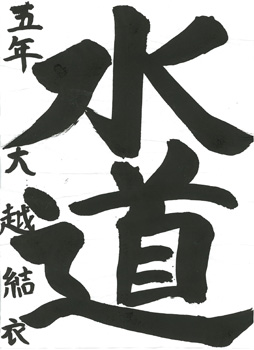 水道
五年 大越結衣